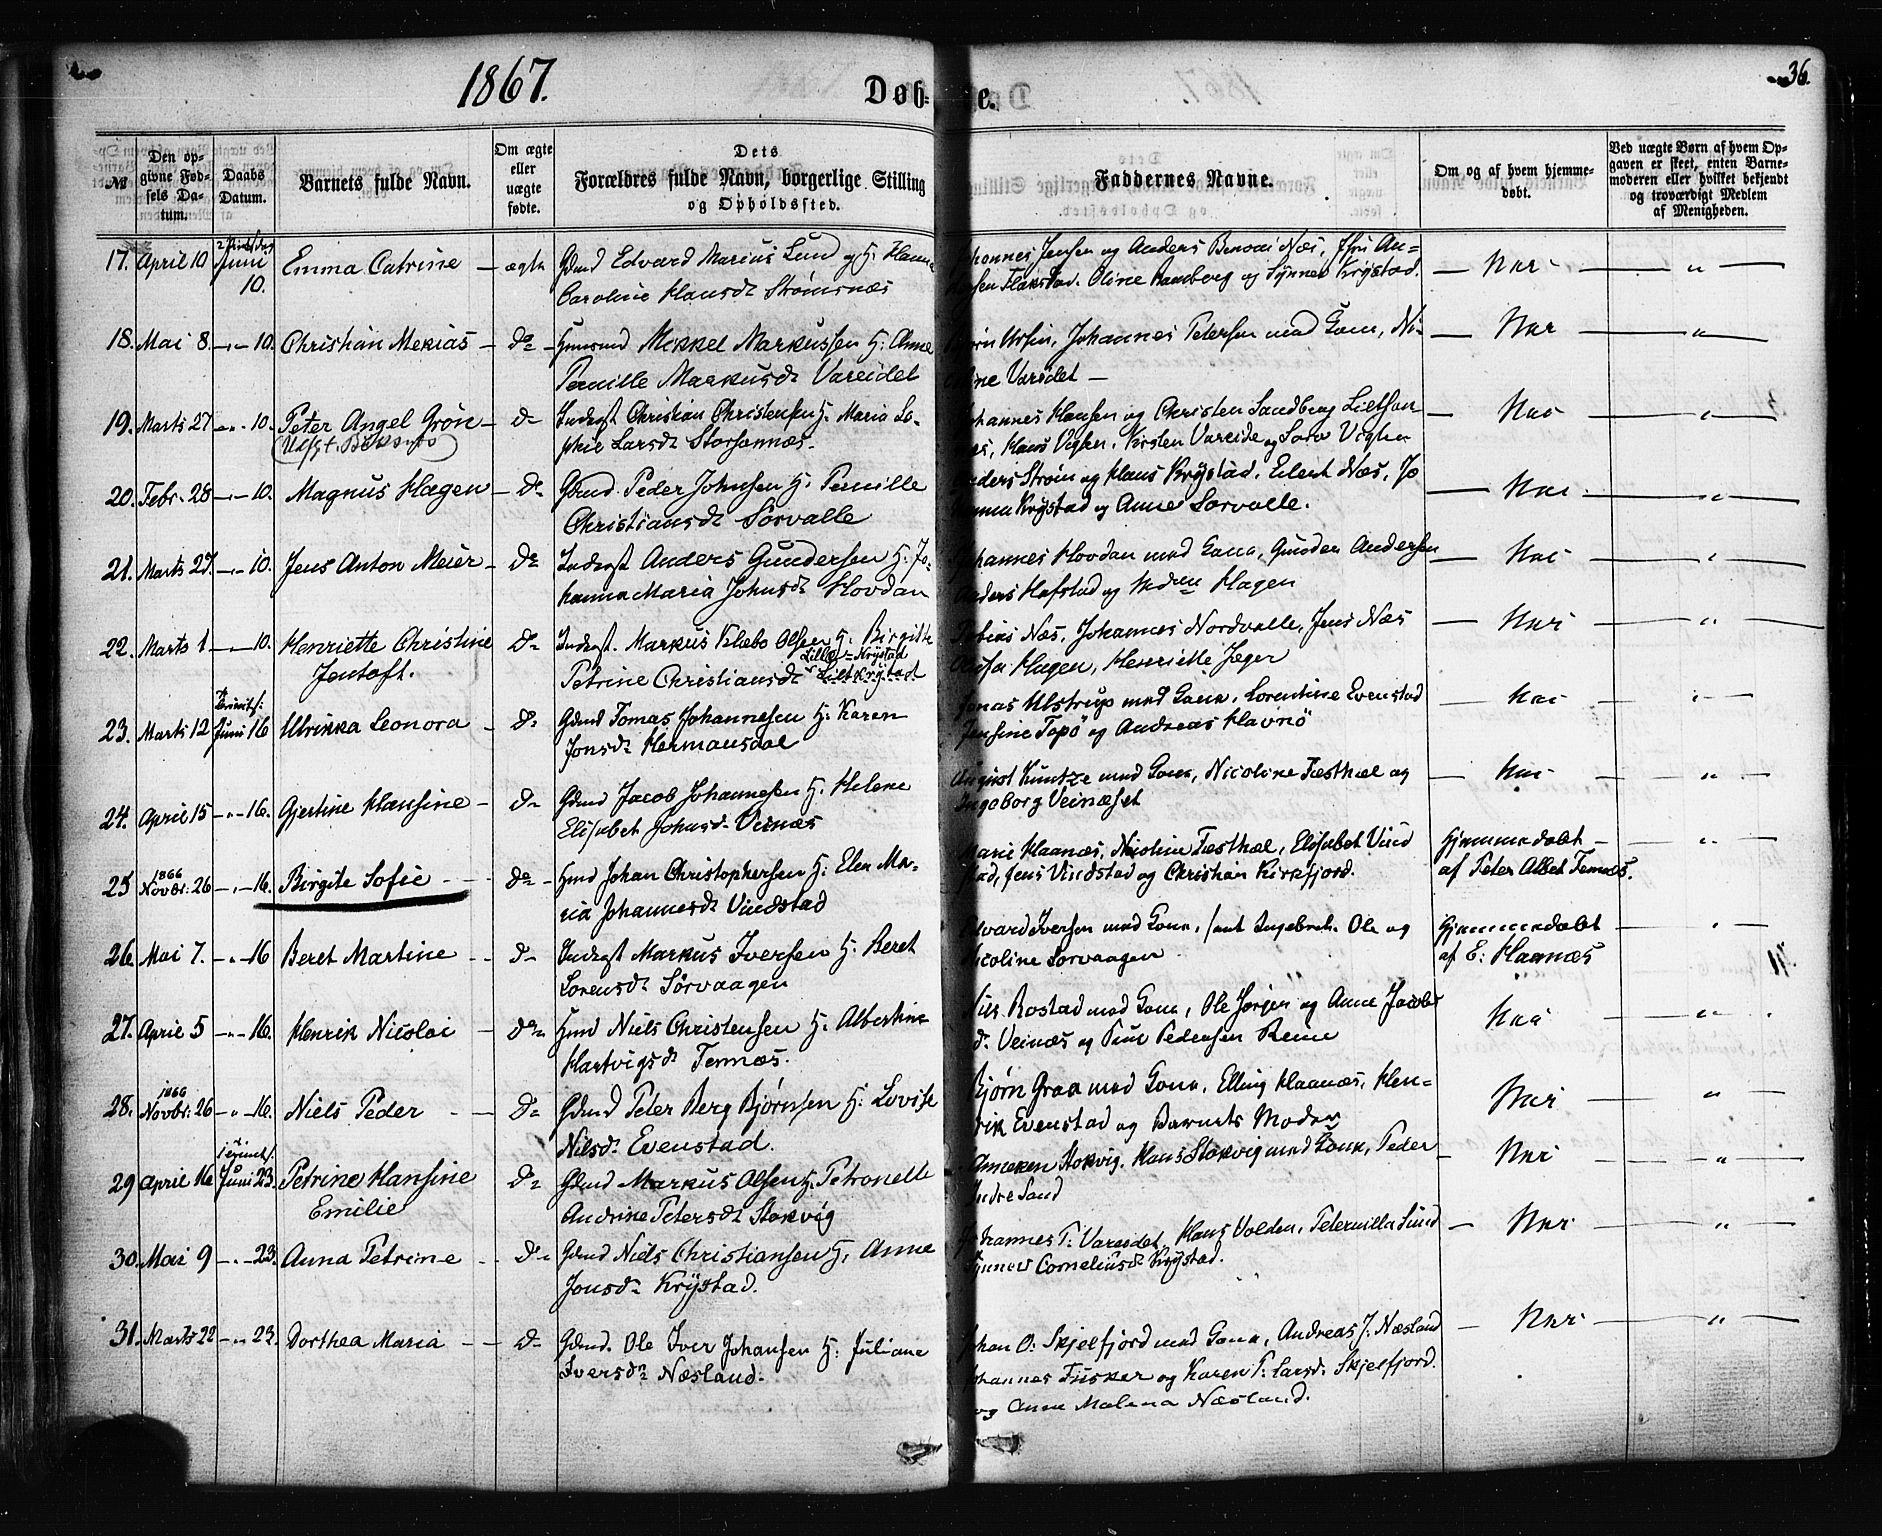 1867.
Døb-
te.
36.
№
Den op-
givne Fød-
sels Da-
tum.
Daabs
Datum.
Barnets fulde Navn.
Om ægte
eller
uægte
fødte.
Dets
Forældres fulde Navn, borgerlige Stilling
og Opholdssted.
Faddernes Navne.
Om og af hvem hjemme-
døbt.
Ved uægte Børn af hvem Op-
gaven er skeet, enten Barne-
moderen eller hvilket bekjendt
og troværdigt Medlem
af Menigheden.
17. April 10 Juni 10. Emma Catrine — ægte Gdmd Edvard Marius Lund og H. Hanna
Caroline Hansdr Strømsnæs
Johannes Jensen og Anders Næs, An=
Flakstad. Oline Sandberg og Synnev Krystad. — Nei — "
18. Mai 8. —"— 10. Christian Mekias — Do — Huusmd Mekkel Markussen H. Anne
Pernille Markusdr Vareidet
Bjørn Ursin, Johannes Petersen med Kona,
Vareidet — Nei — "
19. Marts 27 —"— 10. Peter Angel Grøn — Do Inderst Christian Christensen H. Maria So-
phie Larsdr Storsannæs.
(Udsgt.
Johannes Hansen og Christen Sandberg
Hans Viglen, Kirsten Vareide og Viglen — Nei — "
20. Febr. 28 —"— 10. Magnus Hagen — Do Gdmd. Peder Johnsen H. Pernille
Christiansdr Sørvalle
Anders Strøm og Hans Krystad, Edent Næs, Jo
Krystad og Anne Sørvalle. — Nei — "
21. Marts 27. —"— 10. Jens Anton Meier — Do Inderst Anders Gundersen H. Jo-
hanna Maria Johnsdr Hovdan
Johannes Hovdan med Kona, Gunder Andersen
Anders Hofstad og Hagen — Nei — "
22. Marts 1 —"— 10. Henriette Christine
Jentoft. Do Inderst. Markus Klæbo Olsen H. Birgitte
Lille-Krystad
Petrine Christiansdr Lilt Krystad
Tobias Næs, Johannes Nordvalle, Jens Næs
Hagen, Henriette Jæger — Nei — "
23. Marts 12 Juni 16 Ulrikka Leonora — Do Gdmd Tomas Johannesen H. Karen
Jonsdr Hermansdal
Jonas Ulstrup med Kona, Lorentine Evenstad
Jensine Topø og Andreas Havnø — Nei — "
24. April 15 —"— 16. Gjertine Hansine — Do Gdmd Jacob Johannesen H. Helene
Elisabet Johnsdr Veinæs
August Kuntze med Kona, Nicoline Tæsthæl og
Ingeborg Veinæset — Nei — "
25 1866 Novbr: 26 —"— 16. Birgite Sofie — Do — Hmd Johan Christophersen H: Elen Ma-
ria Johannesdr Vindstad
Marie Haanæs, Nicoline Tæsthæl, Elisabet Vind
stad, Jens Vindstad og Christian Kirkfjord. Hjemmedøbt —
af Peter Albet Tennæs. "
26. Mai 7. —"— 16 Beret Martine — Do Inderst Markus Iversen H: Beret
Lorensdr Sørvaagen
Edvard Iversen med Kona, samt Ingebreh. Ole og
Nicoline Sørvaagen Hjemmedøbt
af E: Haanæs "
27. April 5 —"— 16. Henrik Nicolai — Do Hmd Niels Christensen H: Albertine
Hartvigsdr Tennæs.
Nils Rostad med Kona, Ole Jørgen og Anne Jacobs
d. Veinæs og Paul Pedersen Reine Nei "
28. 1866 Novbr: 26 —"— 16. Niels Peder — Do Gdmd Peter Berg Bjørnsen H: Lovise
Nilsdr Evenstad.
Bjørn Graa med Kona, Elling Haanæs, Hen=
rik Evenstad og Barnets Moder Nei "
29 April 16 Juni 23. Petrine Hansine
Emilie Do Gdmd Markus Olsen H. Petronelle
Andrine Petersdr Stokvig
Anneken Stokvig, Hans Stokvig med Kona, Peder
Andre Sand Nei "
30. Mai 9 —"— 23. Anna Petrine — Do Gdmd Niels Christiansen H. Anne
Jonsdr Krystad.
Johannes P: Vareidet, Hans Volden, Peternilla Sund
Synnev Corneliusdr Krystad. — Nei — "
31. Marts 22 —"— 23. Dorthea Maria — Do Gdmd. Ole Iver Johansen H: Juliane
Iversdr Næsland.
Johan O: Skjelfjord med Kona, Andreas J: Næsland
Johannes Fusker og Karen P: Larsd: Skjelfjord.
og Anne Malena Næsland. — Nei — "